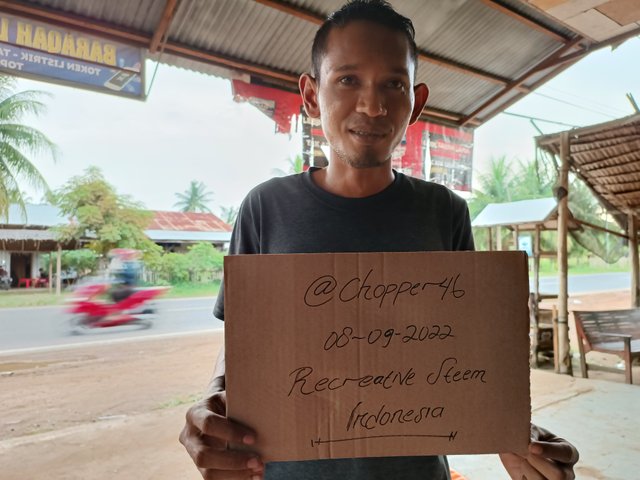 BARAQAH
TOKEN LISTRIK - TA
TOP
@Chopper46
08-09-2022
Recreative Steem
Indonesia